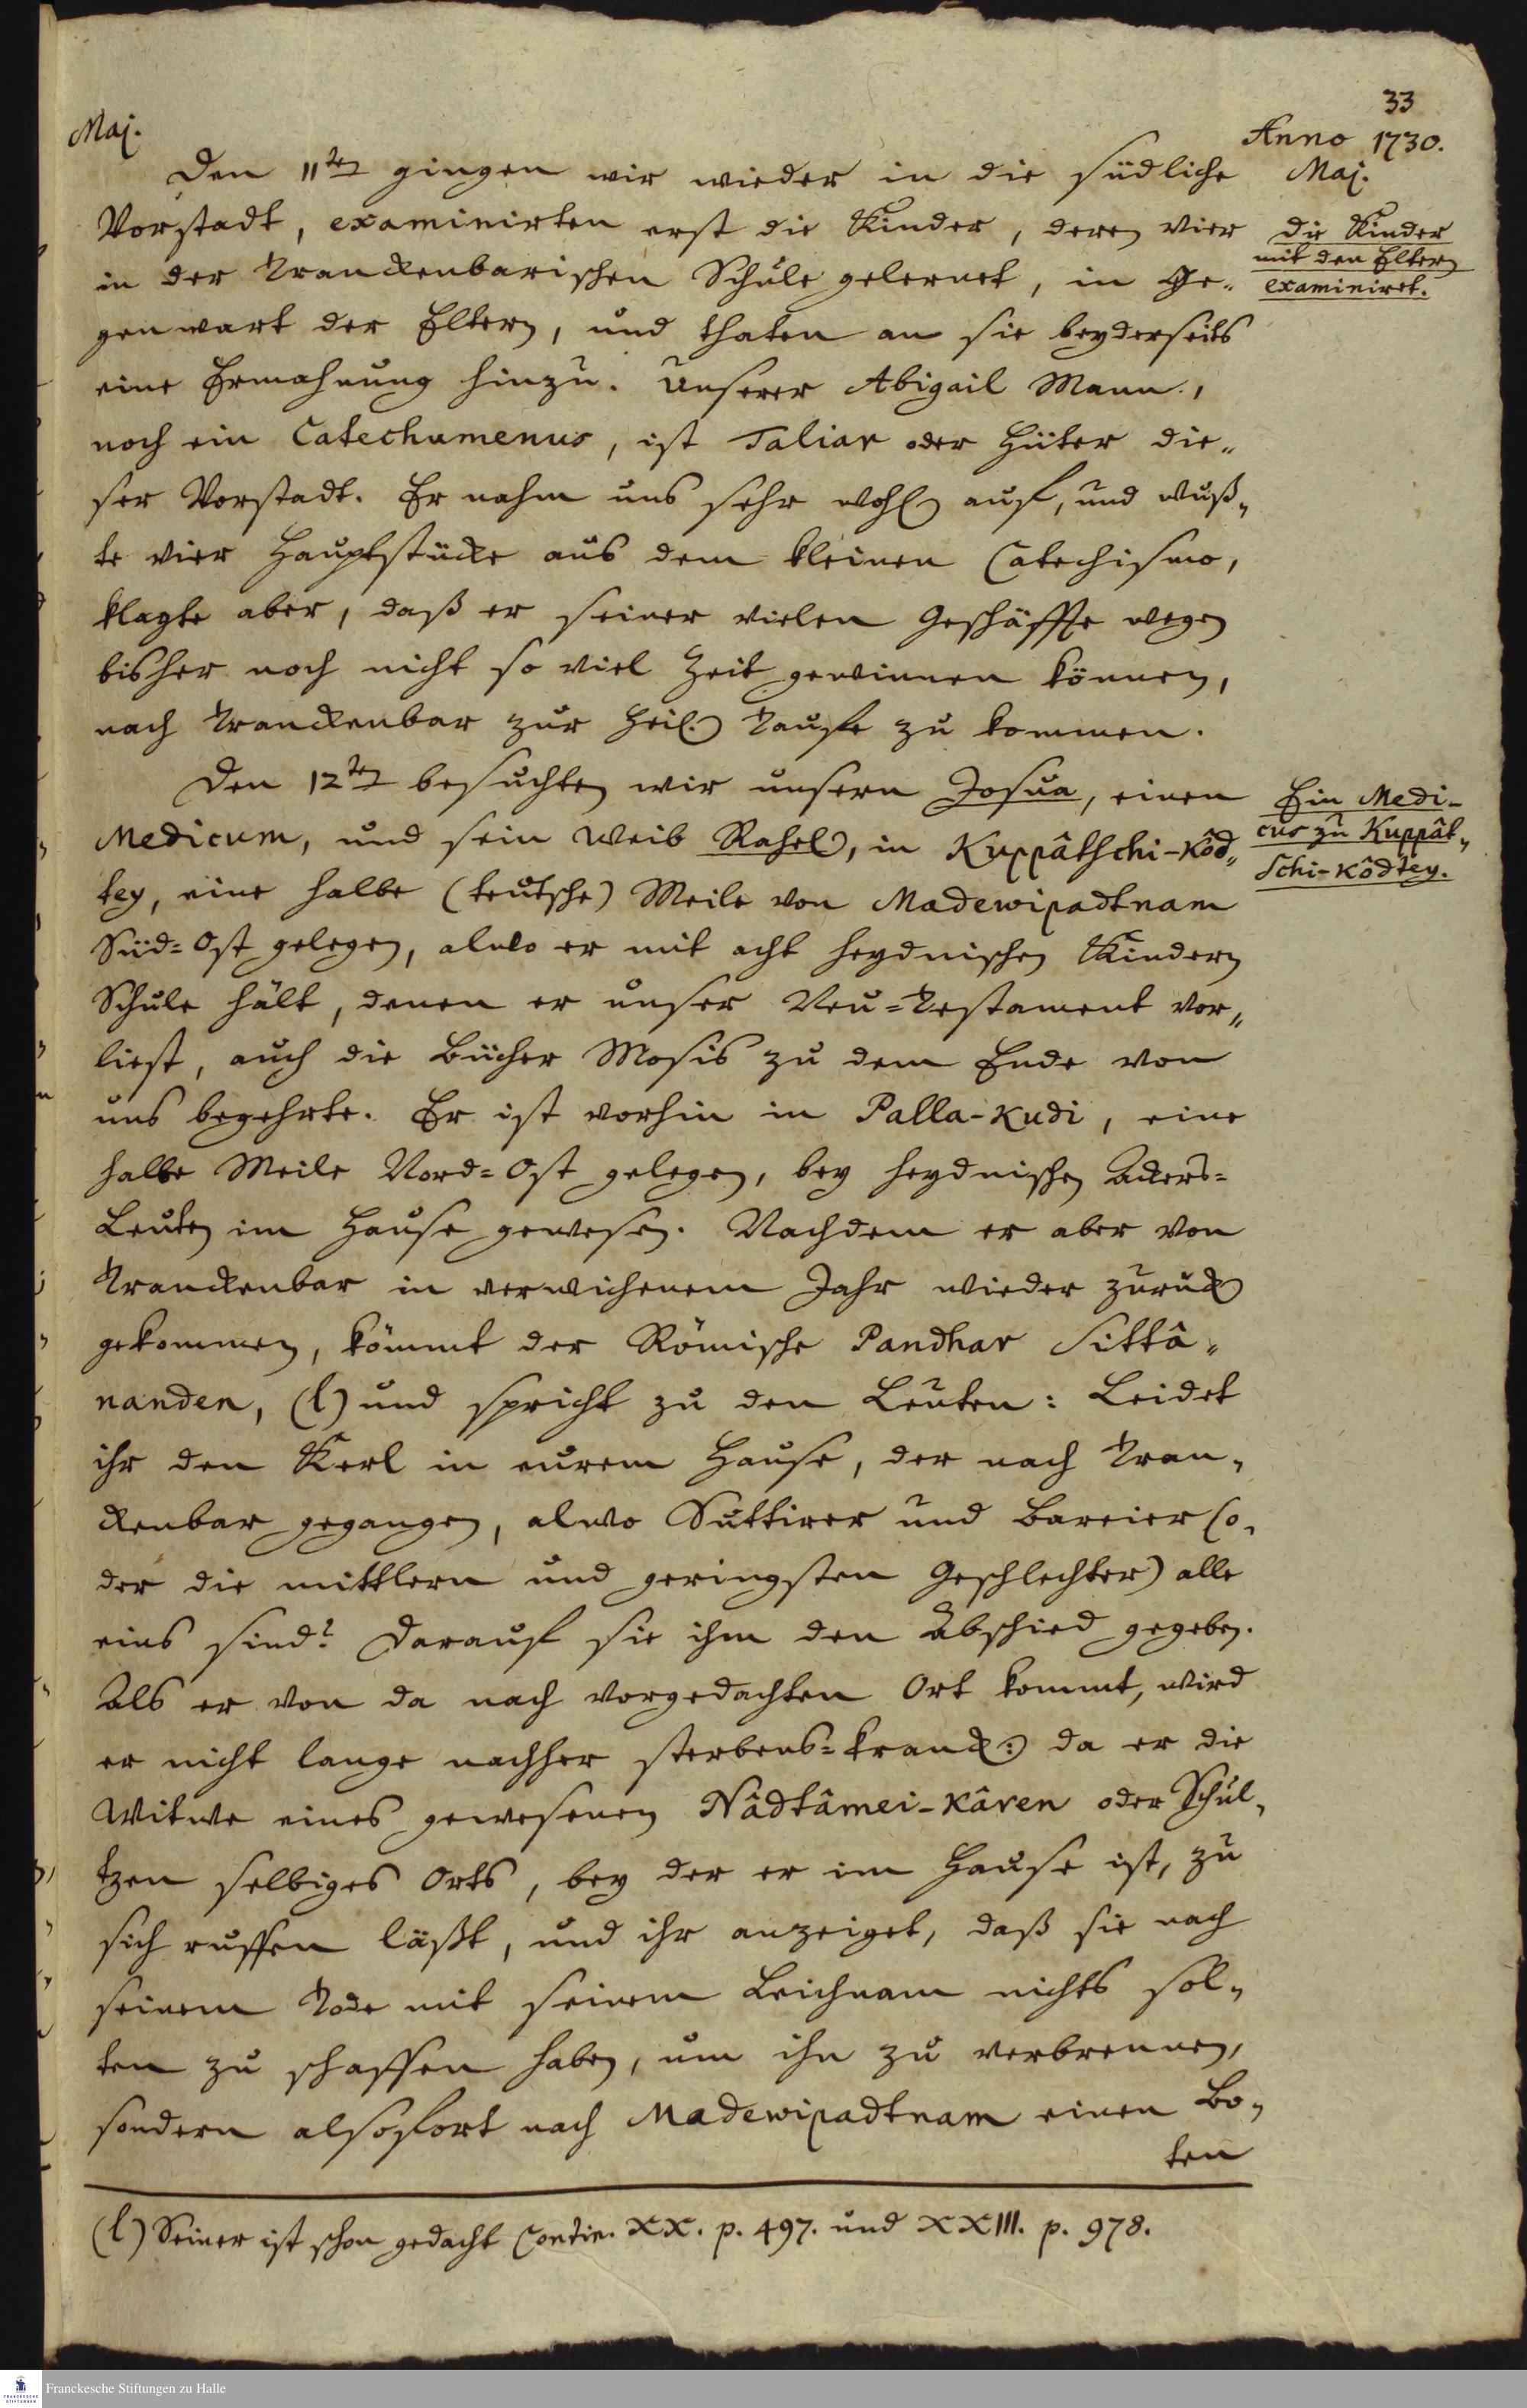 33
Maj.
Anno 1730.
Maj.
Den 11ten gingen wir wieder in die südliche
Vorstadt, examinirten erst die Kinder, deren vier
in der Tranckenbarischen Schule gelernet, in Ge„
genwart der Eltern, und thaten an sie beyderseits
eine Ermahnung hinzu. Unserer Abigail Mann,
noch ein Catechumenus, ist Taliar oder Hüter die„
ser Vorstadt. Er nahm uns sehr wohl auf, und wuß„
te vier Hauptstücke aus dem kleinen Catechismo,
klagte aber, daß er seiner vielen Geschäffte wegen
bisher noch nicht so viel Zeit gewinnen können,
nach Tranckenbar zur Heil. Taufe zu kommen.
die Kinder
mit den Eltern
examiniret.
Den 12ten besuchten wir unsern Josua, einen
Medicum, und sein Weib Rahel, in Kuppâtschi-Kôd„
tey, eine halbe (teutsche) Meile von Madewipadtnam
Süd=Ost gelegen, alwo er mit acht heydnischen Kindern
Schule hält, denen er unser Neu=Testament vor„
liest, auch die Bücher Mosis zu dem Ende von
uns begehrte. Er ist vorhin in Palla-Kudi, eine
halbe Meile Nord=Ost gelegen, bey heydnischen Ackers=
Leuten im Hause gewesen. Nachdem er aber von
Tranckenbar in verwichenem Jahr wieder zurück
gekommen, kömmt der Römische Pandhar Sittâ„
nanden, (l) und spricht zu den Leuten: Leidet
ihr den Kerl in eurem Hause, der nach Tran„
ckenbar gegangen, alwo Suttirer und Bareier (o„
der die mittlern und geringsten Geschlechter) alle
eins sind? Darauf sie ihm den Abschied gegeben.
Als er von da nach vorgedachten Ort kommt, wird
er nicht lange nachher sterbens=kranck: da er die
Witwe eines gewesenen Nâdtâmei-Kâren oder Schul„
tzen selbiges Orts, bey der er im Hause ist, zu
sich ruffen läßt, und ihr anzeiget, daß sie nach
seinem Tode mit seinem Leichnam nichts sol„
ten zu schaffen haben, um ihn zu verbrennen,
sondern alsofort nach Madewipadtnam einen Bo„
ten
Ein Medi-
cus zu Kuppât„
schi-Kôdtey.
(l) Seiner ist schon gedacht Contin. XX. p. 497. und XXIII. p. 978.
FRANCKESCHE
STIFTUNGEN
Franckesche Stiftungen zu Halle